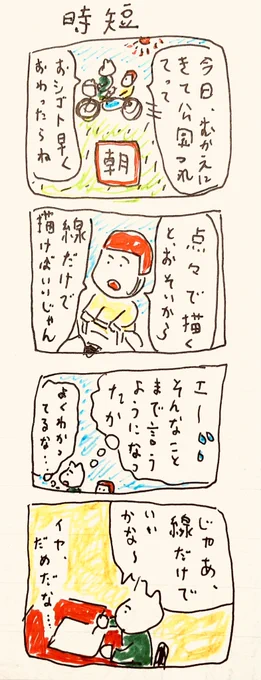 時短
今日、むかえに
きて公園つれ
てって
おシゴト早く
おわったらね
朝
点々で描く
と、おそいから
線だけで
描けばいいじゃん
エー
そんなこと
まで言う
ようになっ
たか
よくわかっ
てるな…
じゃあ、
線だけで
いい
かな〜
イヤ
だめだな…